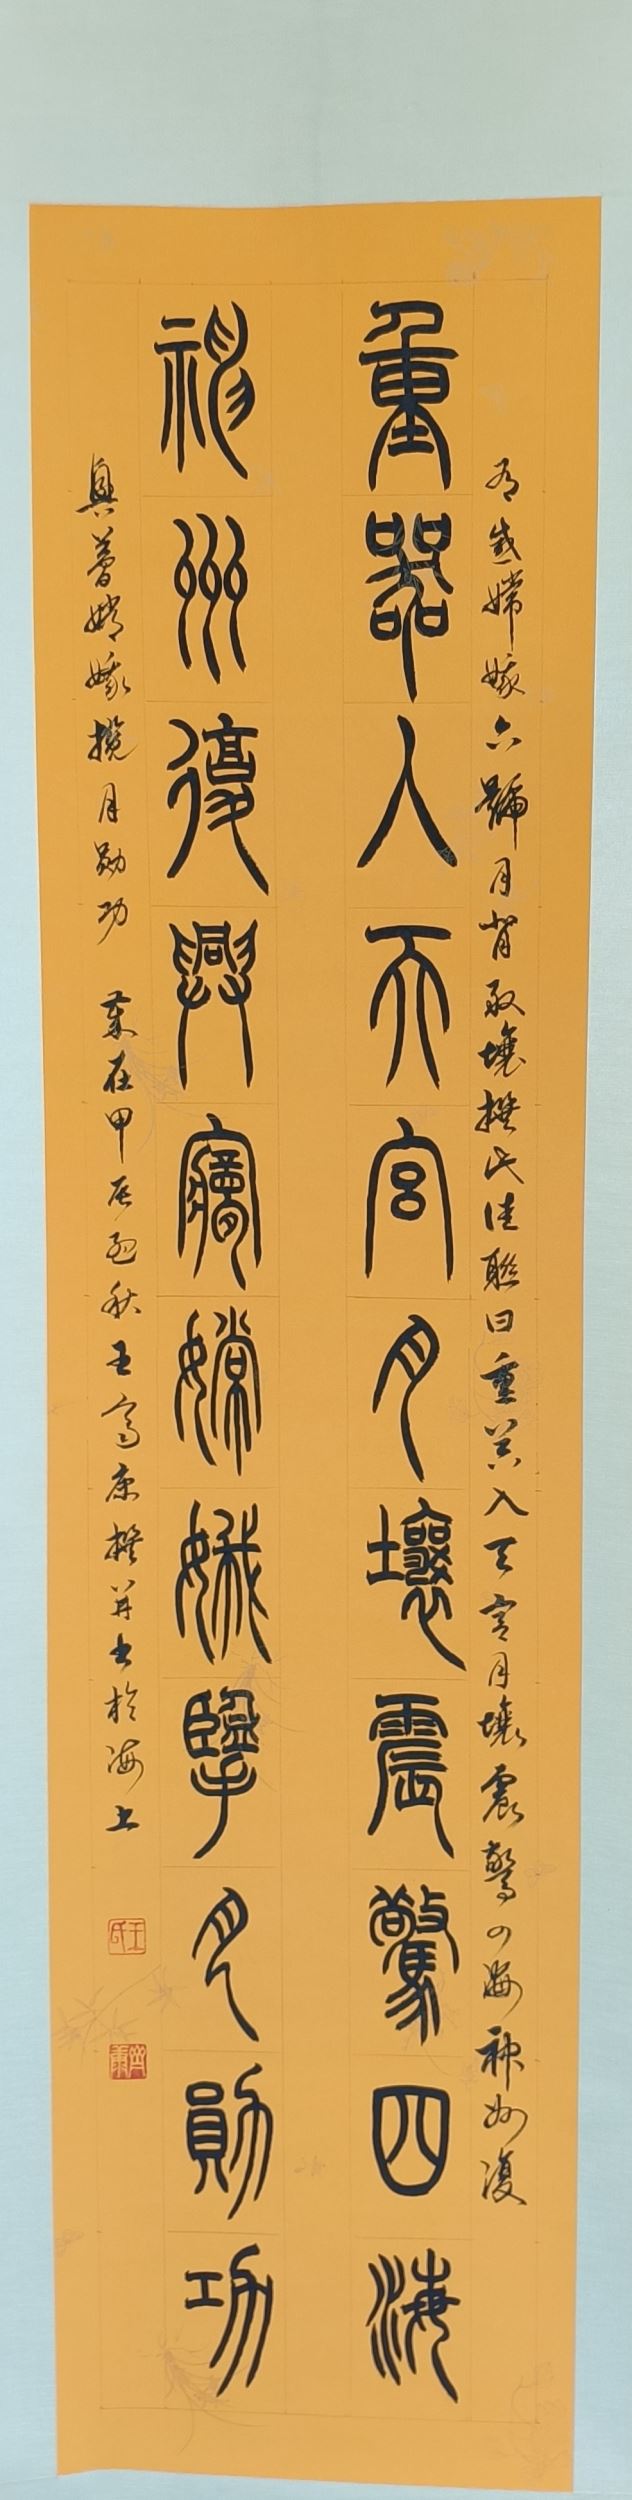 有感嫦娥六號月背取壤撰此佳聯曰重器入天宮月壤震驚四海神州復
重器入天宮月壤震驚四海
神州復興夢嫦娥擥月勛功
興夢嫦娥攬月勛功 歲在甲辰孟秋王康撰并書於海上
王氏